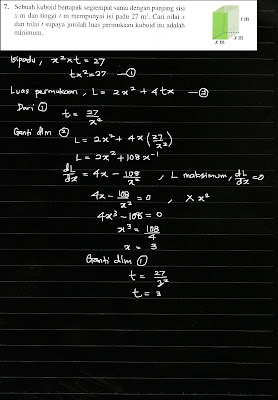 7. Sebuah kuboid bertapak segiempat sama dengan panjang sisi
x m dan tinggi t m mempunyai isi padu 27 m³. Cari nilai x
dan nilai t supaya jumlah luas permukaan kuboid itu adalah
minimum.
t m
x m
x m
Isipadu, x² × t = 27
tx² = 27 — ①
Luas permukaan, L = 2x² + 4tx — ②
Dari ①
t = 27/x²
Ganti dlm ②
L = 2x² + 4x (27/x²)
L = 2x² + 108x⁻¹
dL/dx = 4x - 108/x² , L maksimum, dL/dx = 0
4x - 108/x² = 0 , × x²
4x³ - 108 = 0
x³ = 108/4
x = 3
Ganti dlm ①
t = 27/3²
t = 3